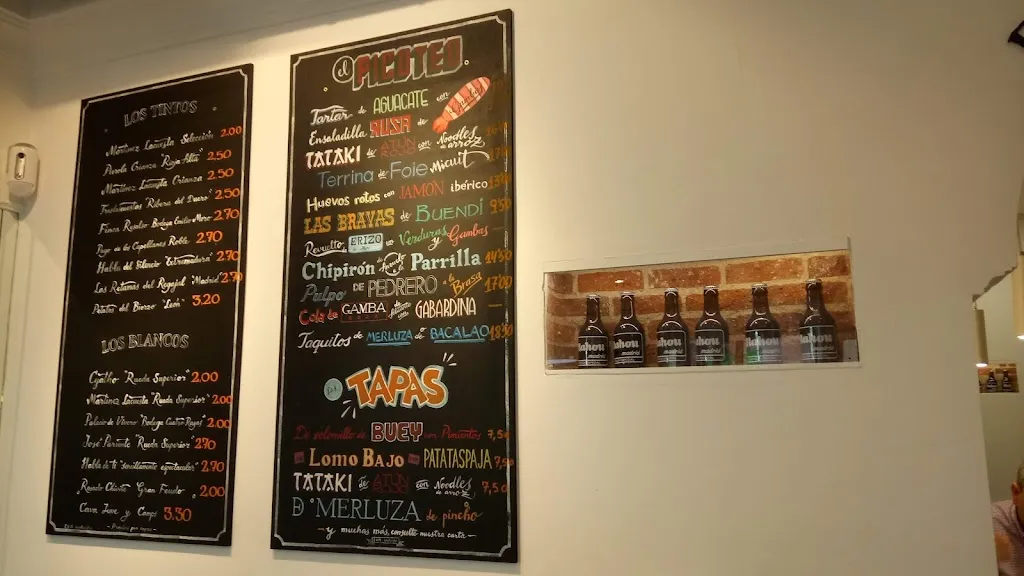 LOS TINTOS
Martínez Lacuesta Selección 2.00
Crianza "Rioja Alta" 2.50
Martínez Lacuesta Crianza 2.50
"Ribera del Duero" 2.50
Finca Resalso Bodega Emilio Moro 2.70
Pago de los Capellanes Roble 2.70
Habla del Silencio "Extremadura" 2.70
Las Retamas del Regajal "Madrid" 2.70
Pétalos del Bierzo "León" 3.20
LOS BLANCOS
"Rueda Superior" 2.00
Martínez Lacuesta "Rueda Superior" 2.00
Palacio de Vivero "Bodega Cuatro Rayas" 2.00
José Pariente "Rueda Superior" 2.70
Habla de ti "sencillamente espectacular" 2.70
Rosado Chivite "Gran Feudo" 2.00
Cava Jove y Camps 3.30
el PICOTEO
Tartar de AGUACATE con
Ensaladilla RUSA de
TATAKI de ATÚN con Noodles de arroz
Terrina de Foie Micuit
Huevos rotos con JAMÓN ibérico
LAS BRAVAS de BUENDÍ 9'50
Revuelto de ERIZO con Verduras y Gambas
Chipirón de Parrilla 14'50
Pulpo DE PEDRERO a la Brasa 17'00
Cola de GAMBA GABARDINA
Taquitos de MERLUZA de BACALAO 18'50
TAPAS
De solomillo de BUEY con Pimientos 7,50
LOMO BAJO PATATASPAJA
TATAKI de ATÚN con Noodles de arroz 7,50
D MERLUZA de pincho
y muchas más, consulte nuestra carta
mahou
madrid
mahou
madrid
mahou